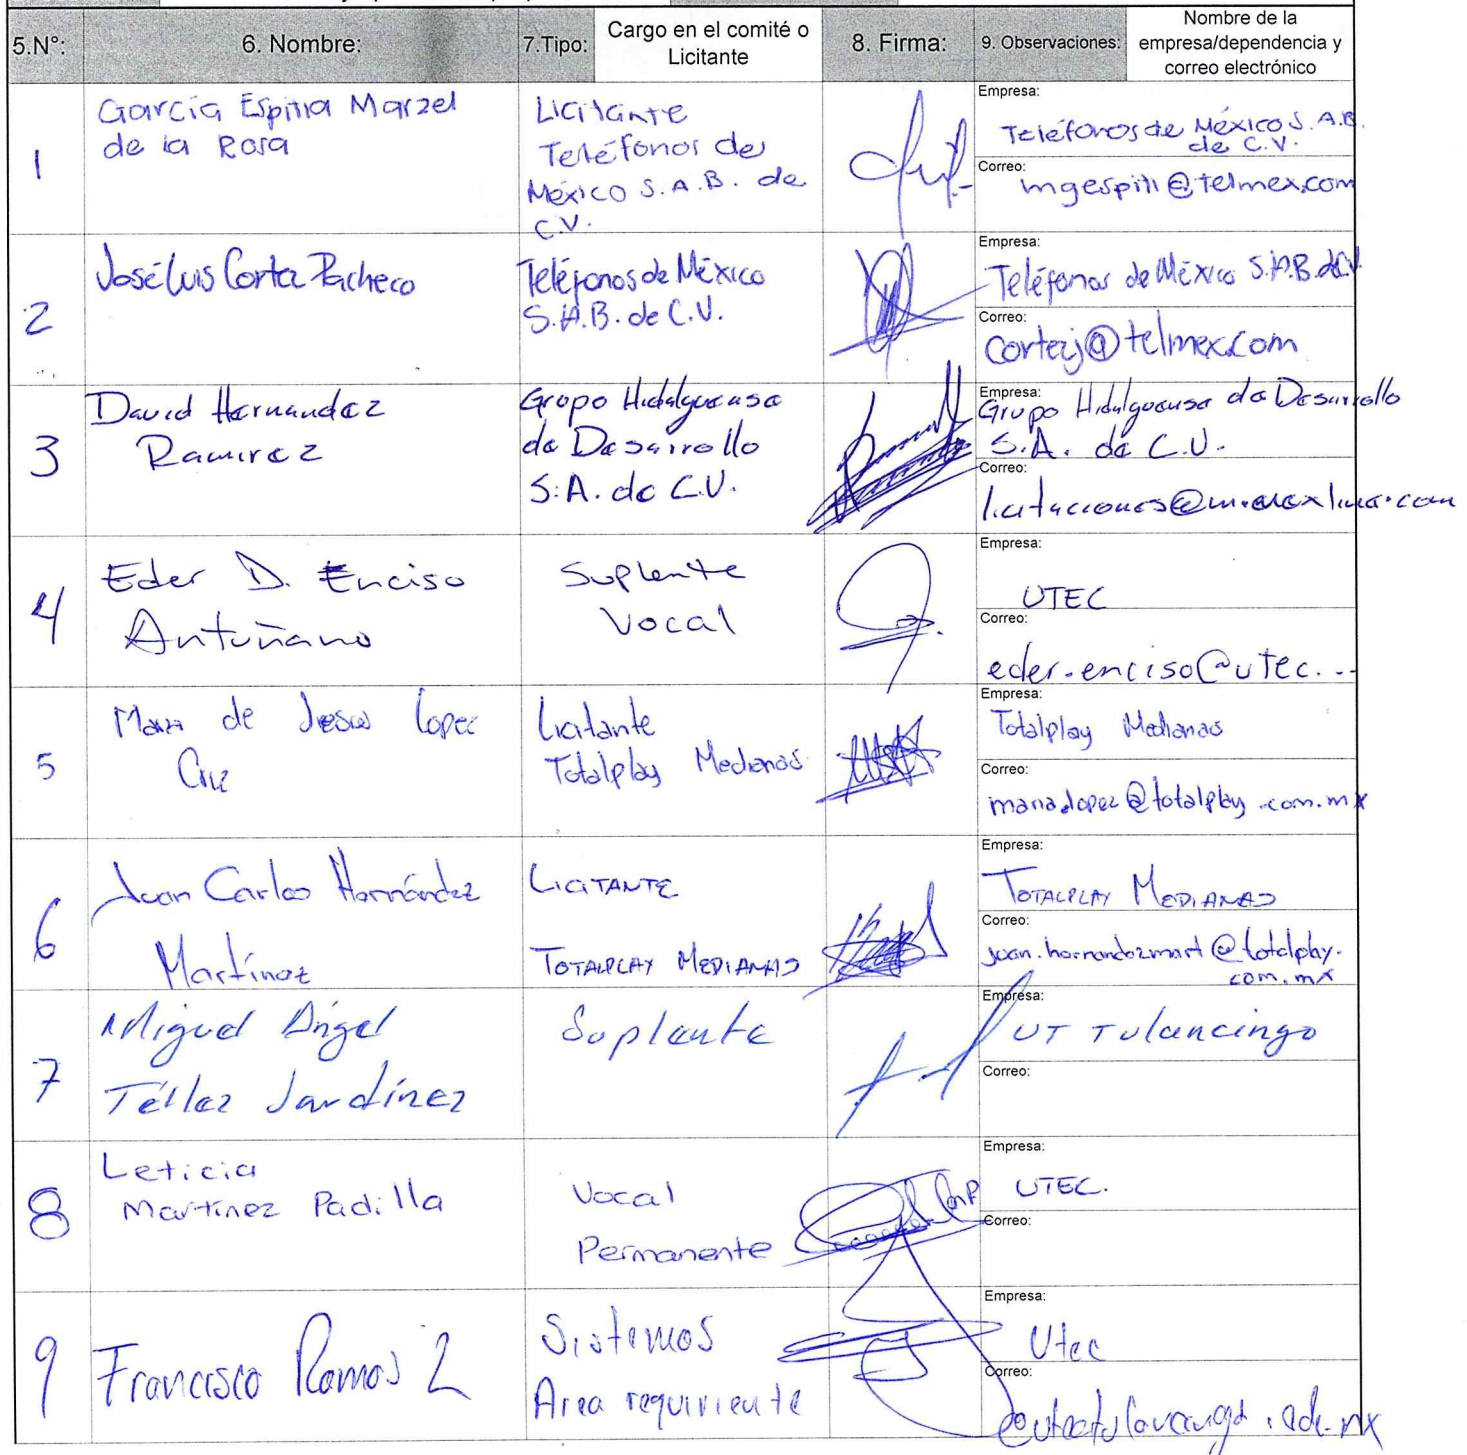 5.N°:
6. Nombre:
7.Tipo:
Cargo en el comité o
Licitante
8. Firma:
9. Observaciones:
Nombre de la
empresa/dependencia y
correo electrónico
1
García Espitia Marzel
de la Rosa
Licitante
Teléfonos de
México S.A.B. de
C.V.
Empresa:
Teléfonos de México S.A.B.
de C.V.
Correo:
mgespiti@telmex.com
2
José Luis Cortez Pacheco
Teléfonos de México
S.A.B. de C.V.
Empresa:
Teléfonos de México S.A.B. de C.V.
Correo:
cortezj@telmex.com
3
David Hernandez
Ramirez
Grupo Hidalguense
de Desarrollo
S.A. de C.V.
Empresa:
Grupo Hidalguense de Desarrollo
S.A. de C.V.
Correo:
4
Eder D. Enciso
Antuñano
Suplente
Vocal
Empresa:
UTEC
Correo:
eder.enciso@utec...
5
Maria de Jesus Lopez
Cruz
Licitante
Totalplay Medianas
Empresa:
Totalplay Medianas
Correo:
maria.lopez@totalplay.com.mx
6
Juan Carlos Hernández
Martínez
LICITANTE
TOTALPLAY MEDIANAS
Empresa:
TOTALPLAY MEDIANAS
Correo:
juan.hernandezmart@totalplay.
com.mx
7
Miguel Ángel
Téllez Jardínez
Suplente
Empresa:
UT Tulancingo
Correo:
8
Leticia
Martínez Padilla
Vocal
Permanente
Empresa:
UTEC.
Correo:
9
Francisco Ramos L
Sistemas
Area requiriente
Empresa:
Utec
Correo: